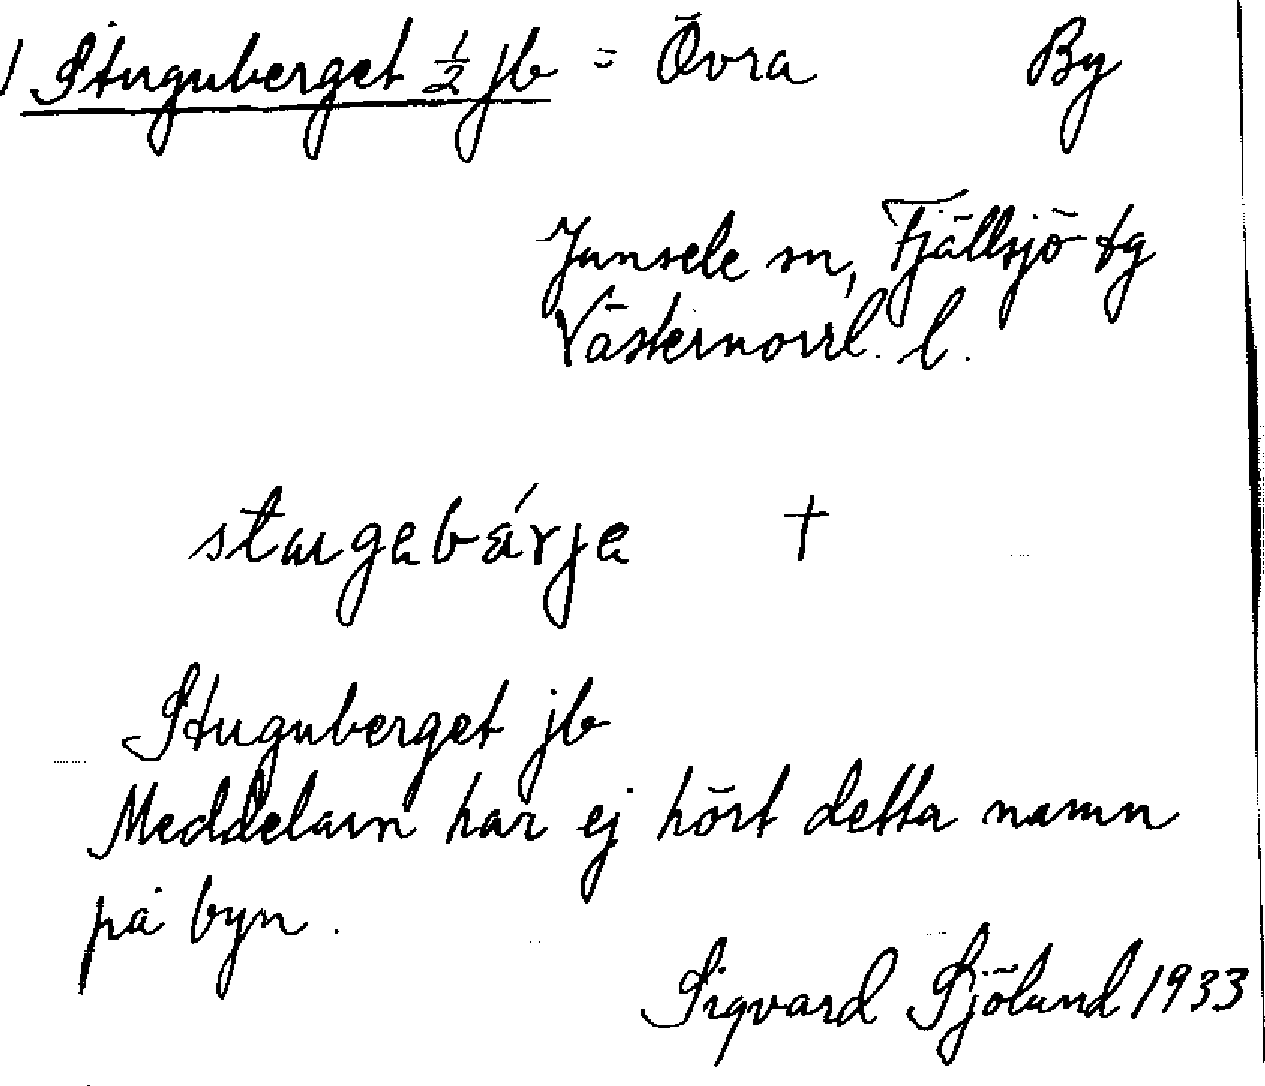 Stuguberget ½ jb = Övra By
Junsele sn, Fjällsjö tg
Västernorrl. l.
stugebárje †
Stuguberget jb
Meddelarn har ej hört detta namn
på byn.
Sigvard Sjölund 1933